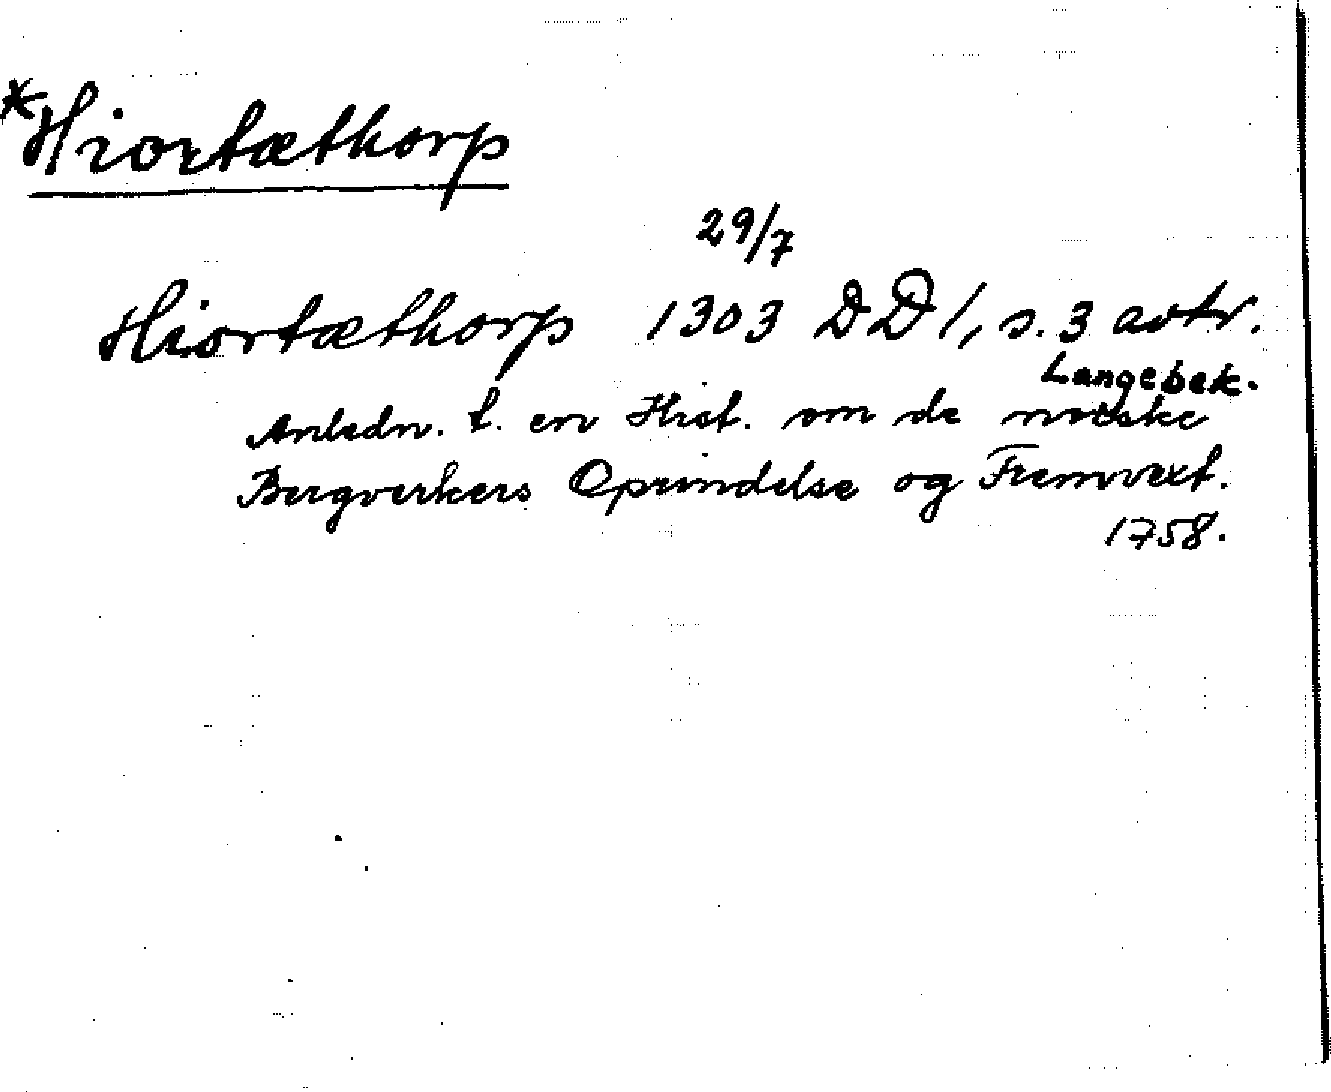 *Hiortæthorp
29/7
Hiortæthorp 1303 DD 1, s. 3 avtr.
Langebek.
Anledn. t. en Hist. om de norske
Bergverkers Oprindelse og Fremvext.
1758.